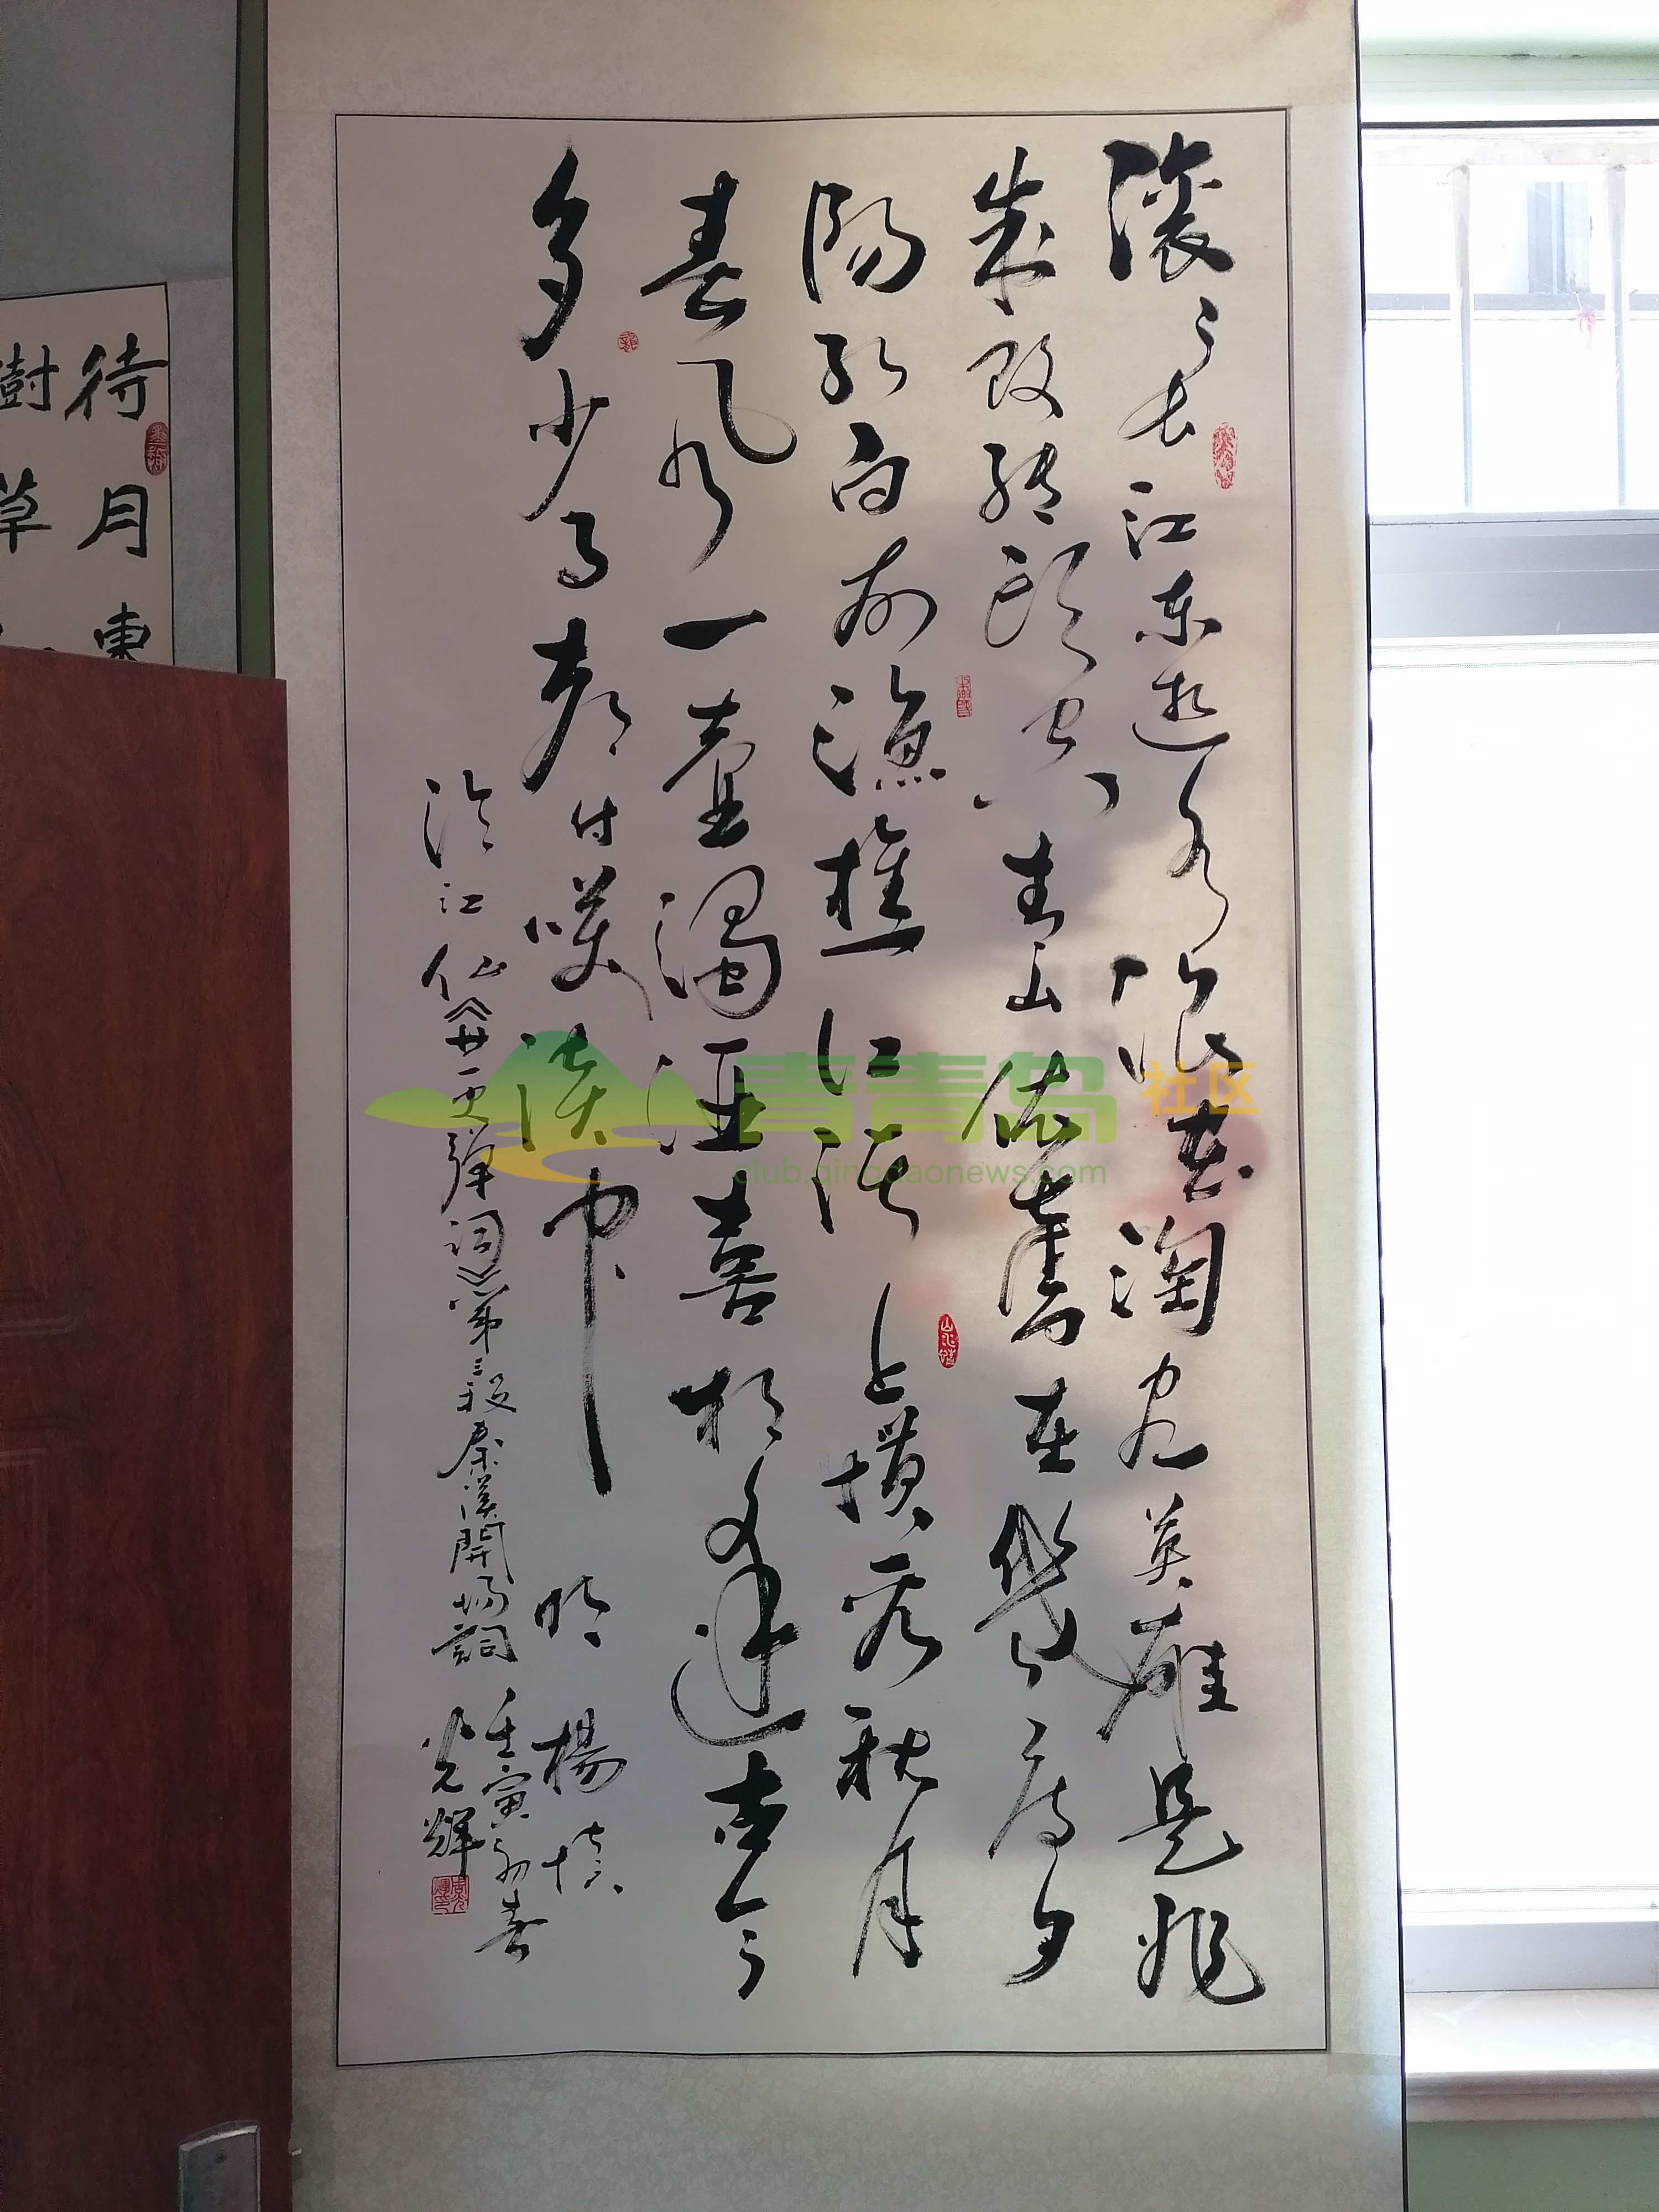 滚々长江东逝水浪花淘尽英雄是非
成败转头空青山依旧在几度夕
阳红白发渔樵江渚上惯看秋月
春风一壶浊酒喜相逢古今
多少事都付笑谈中 明 楊慎
临江仙《廿一史弹词》第三段秦漢開場詞 壬寅初春
光輝
山水情
待月東
樹草
青青岛社区
club.qingdaonews.com